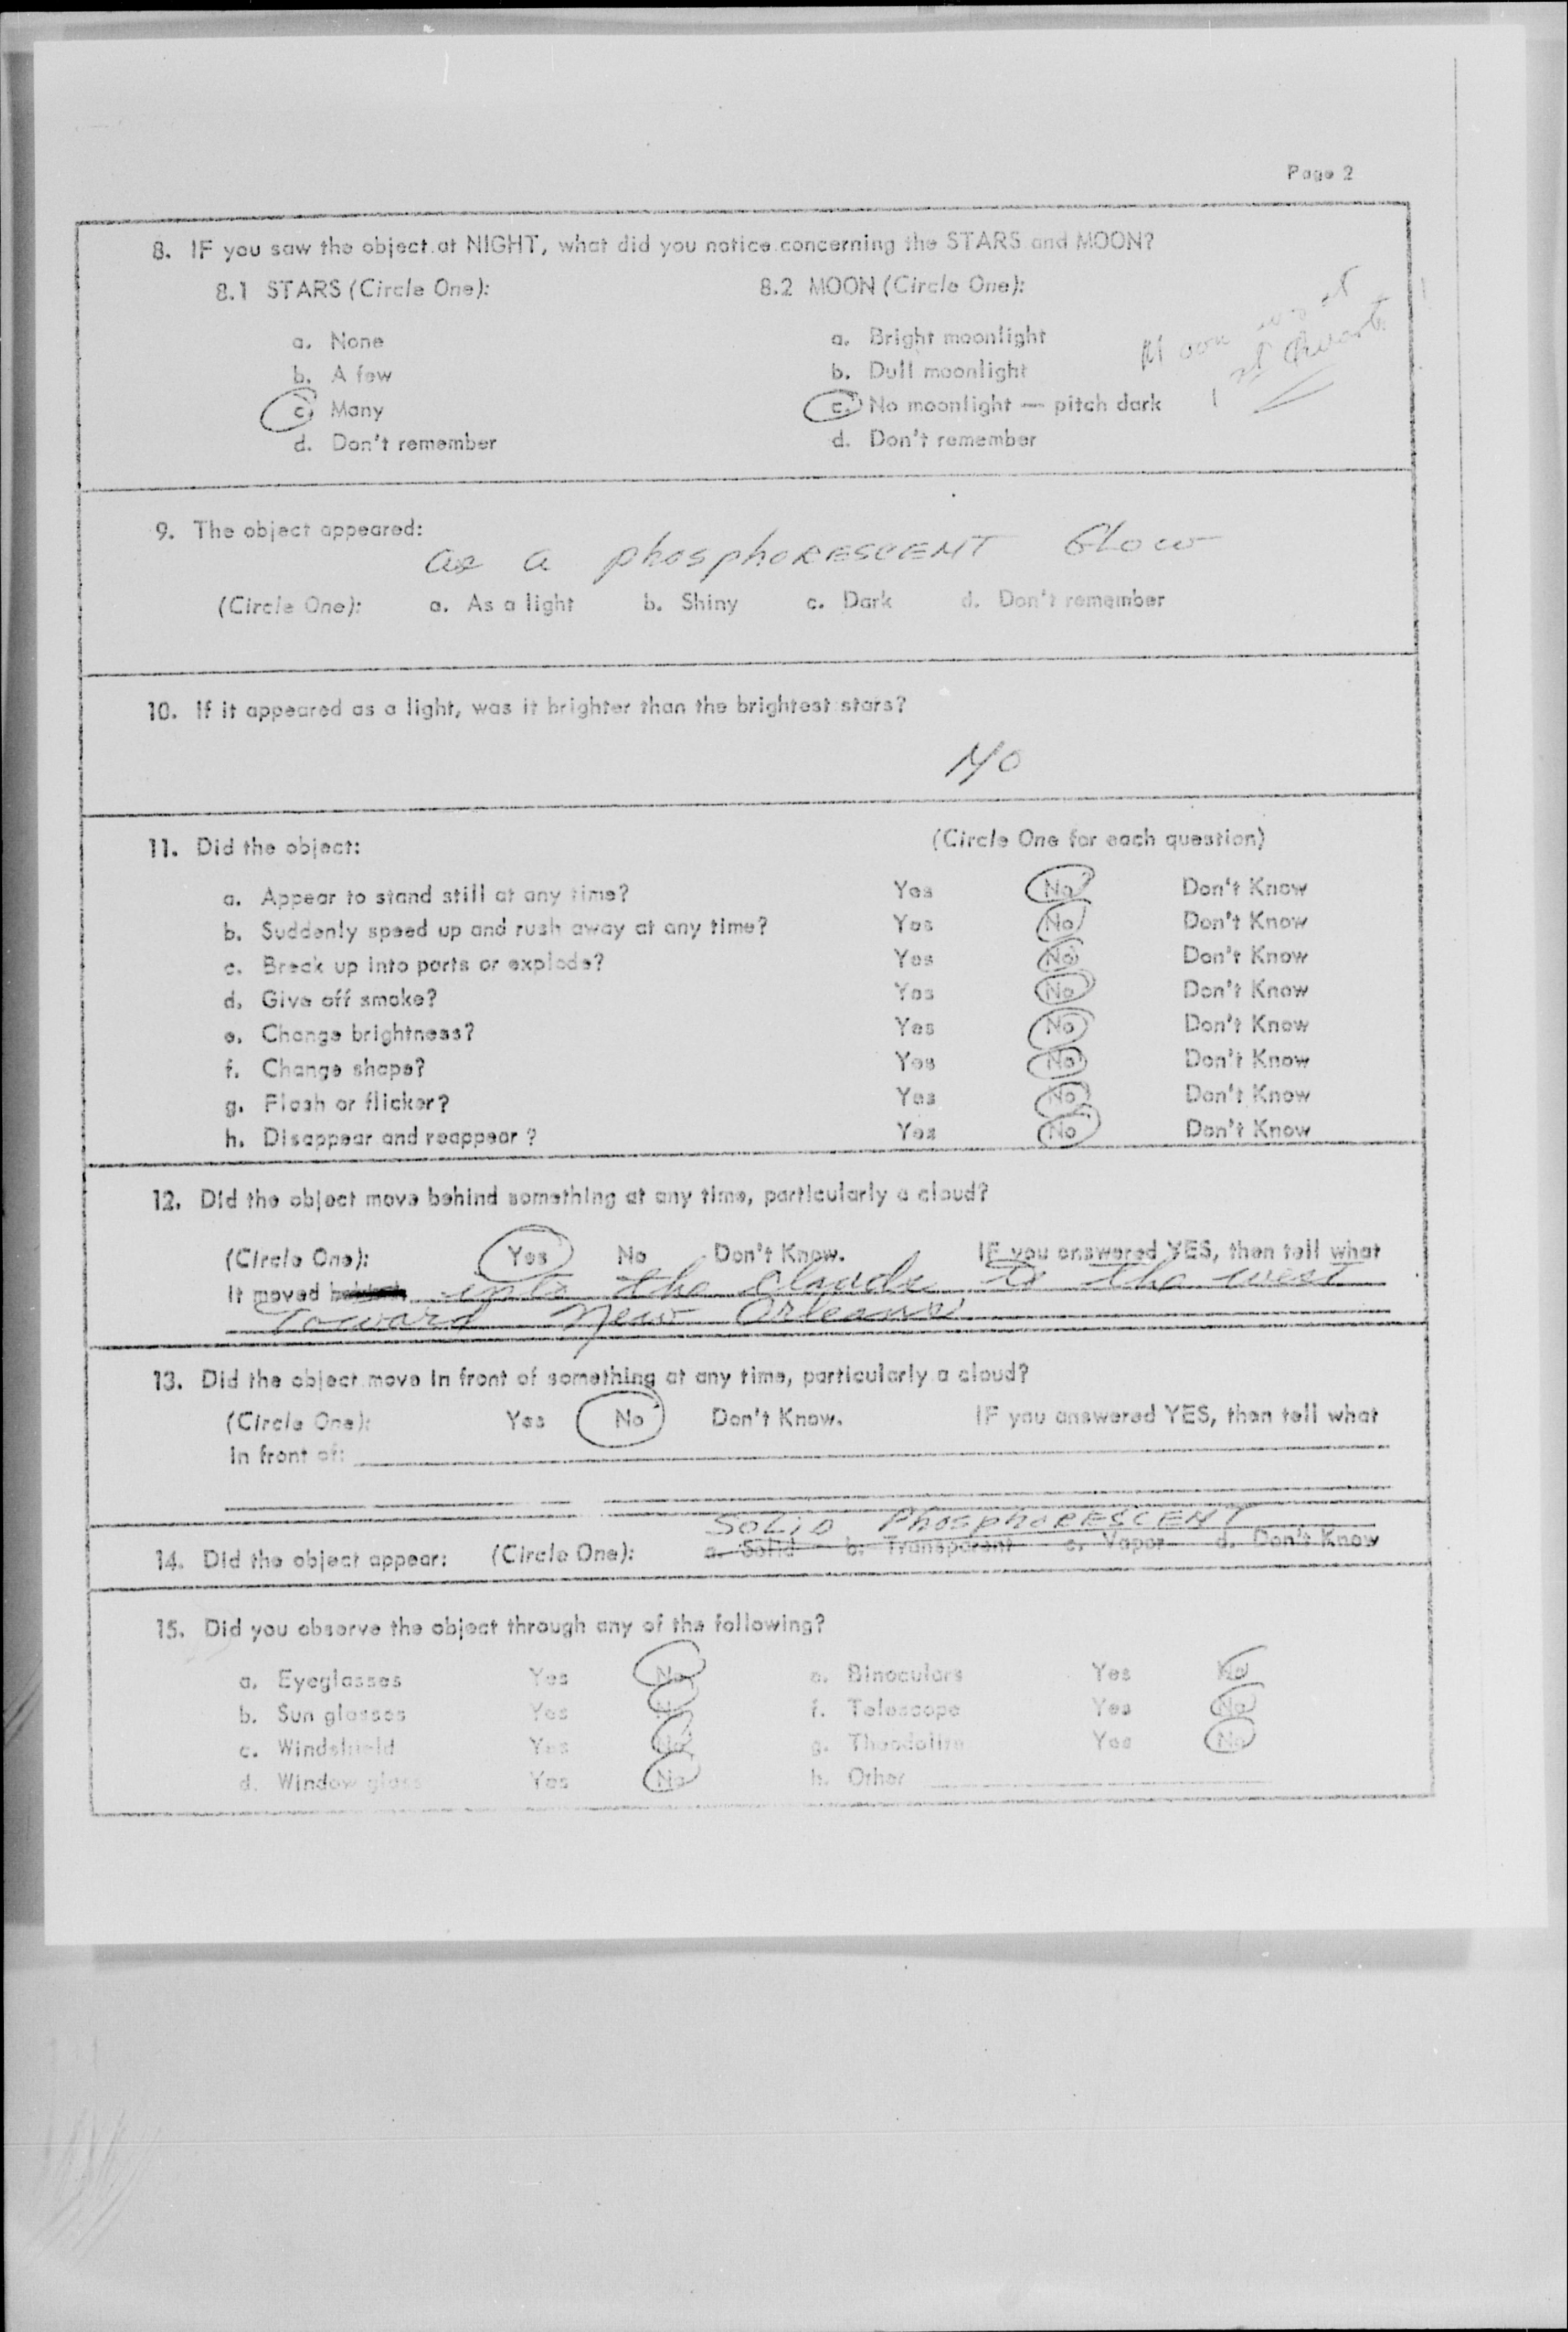 Page 2
8. IF you saw the object at NIGHT, what did you notice concerning the STARS and MOON?
8.1 STARS (Circle One):
a. None
b. A few
c. Many
d. Don't remember
8.2 MOON (Circle One):
a. Bright moonlight
b. Dull moonlight
c. No moonlight — pitch dark
d. Don't remember
Moon was at
1st Quart.
9. The object appeared:
as a phosphoRESCENT Glow
(Circle One): a. As a light b. Shiny c. Dark d. Don't remember
10. If it appeared as a light, was it brighter than the brightest stars?
NO
11. Did the object: (Circle One for each question)
a. Appear to stand still at any time? Yes No Don't Know
b. Suddenly speed up and rush away at any time? Yes No Don't Know
c. Break up into parts or explode? Yes No Don't Know
d. Give off smoke? Yes No Don't Know
e. Change brightness? Yes No Don't Know
f. Change shape? Yes No Don't Know
g. Flash or flicker? Yes No Don't Know
h. Disappear and reappear ? Yes No Don't Know
12. Did the object move behind something at any time, particularly a cloud?
(Circle One): Yes No Don't Know. IF you answered YES, then tell what
It moved into the clouds to the west
Toward New Orleans
13. Did the object move in front of something at any time, particularly a cloud?
(Circle One): Yes No Don't Know. IF you answered YES, then tell what
in front of:
SOLID PhosphoRESCENT
14. Did the object appear: (Circle One): a. Solid b. Transparent c. Vapor d. Don't Know
15. Did you observe the object through any of the following?
a. Eyeglasses Yes No
b. Sun glasses Yes No
c. Windshield Yes No
d. Window glass Yes No
e. Binoculars Yes No
f. Telescope Yes No
g. Theodolite Yes No
h. Other